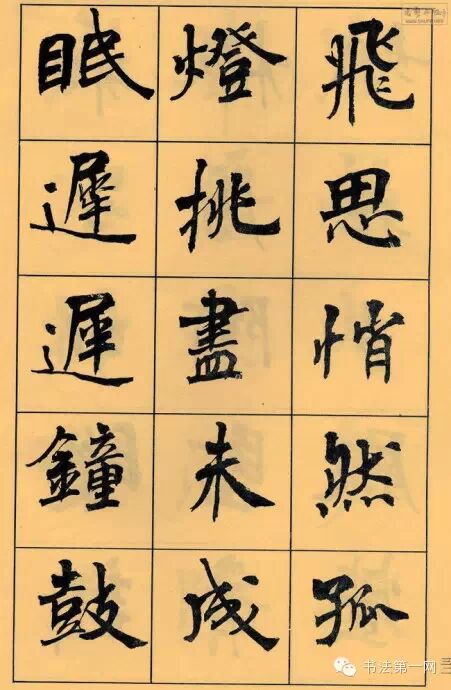 飛思悄然孤
燈挑盡未成
眠遲遲鐘鼓
书法第一网